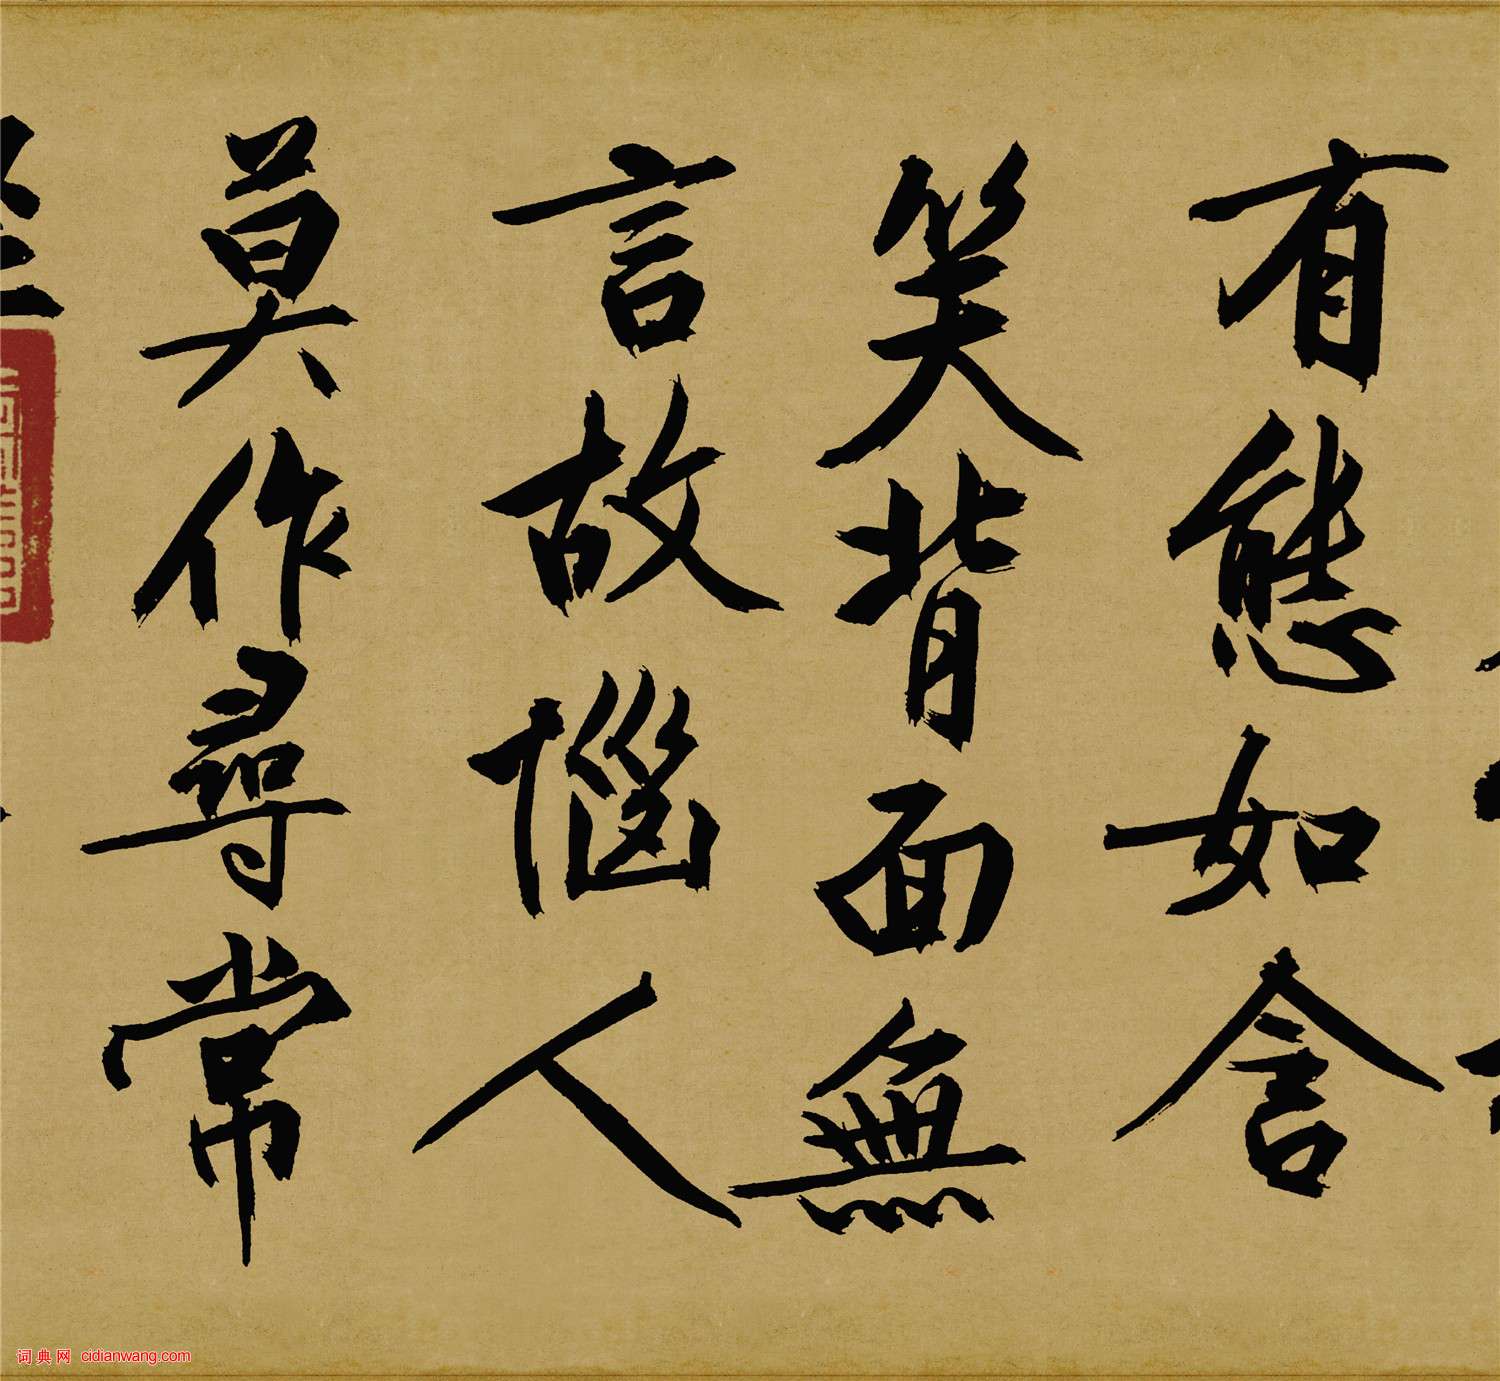 有態如含
笑背面無
言故惱人
莫作尋常
词典网 cidianwang.com